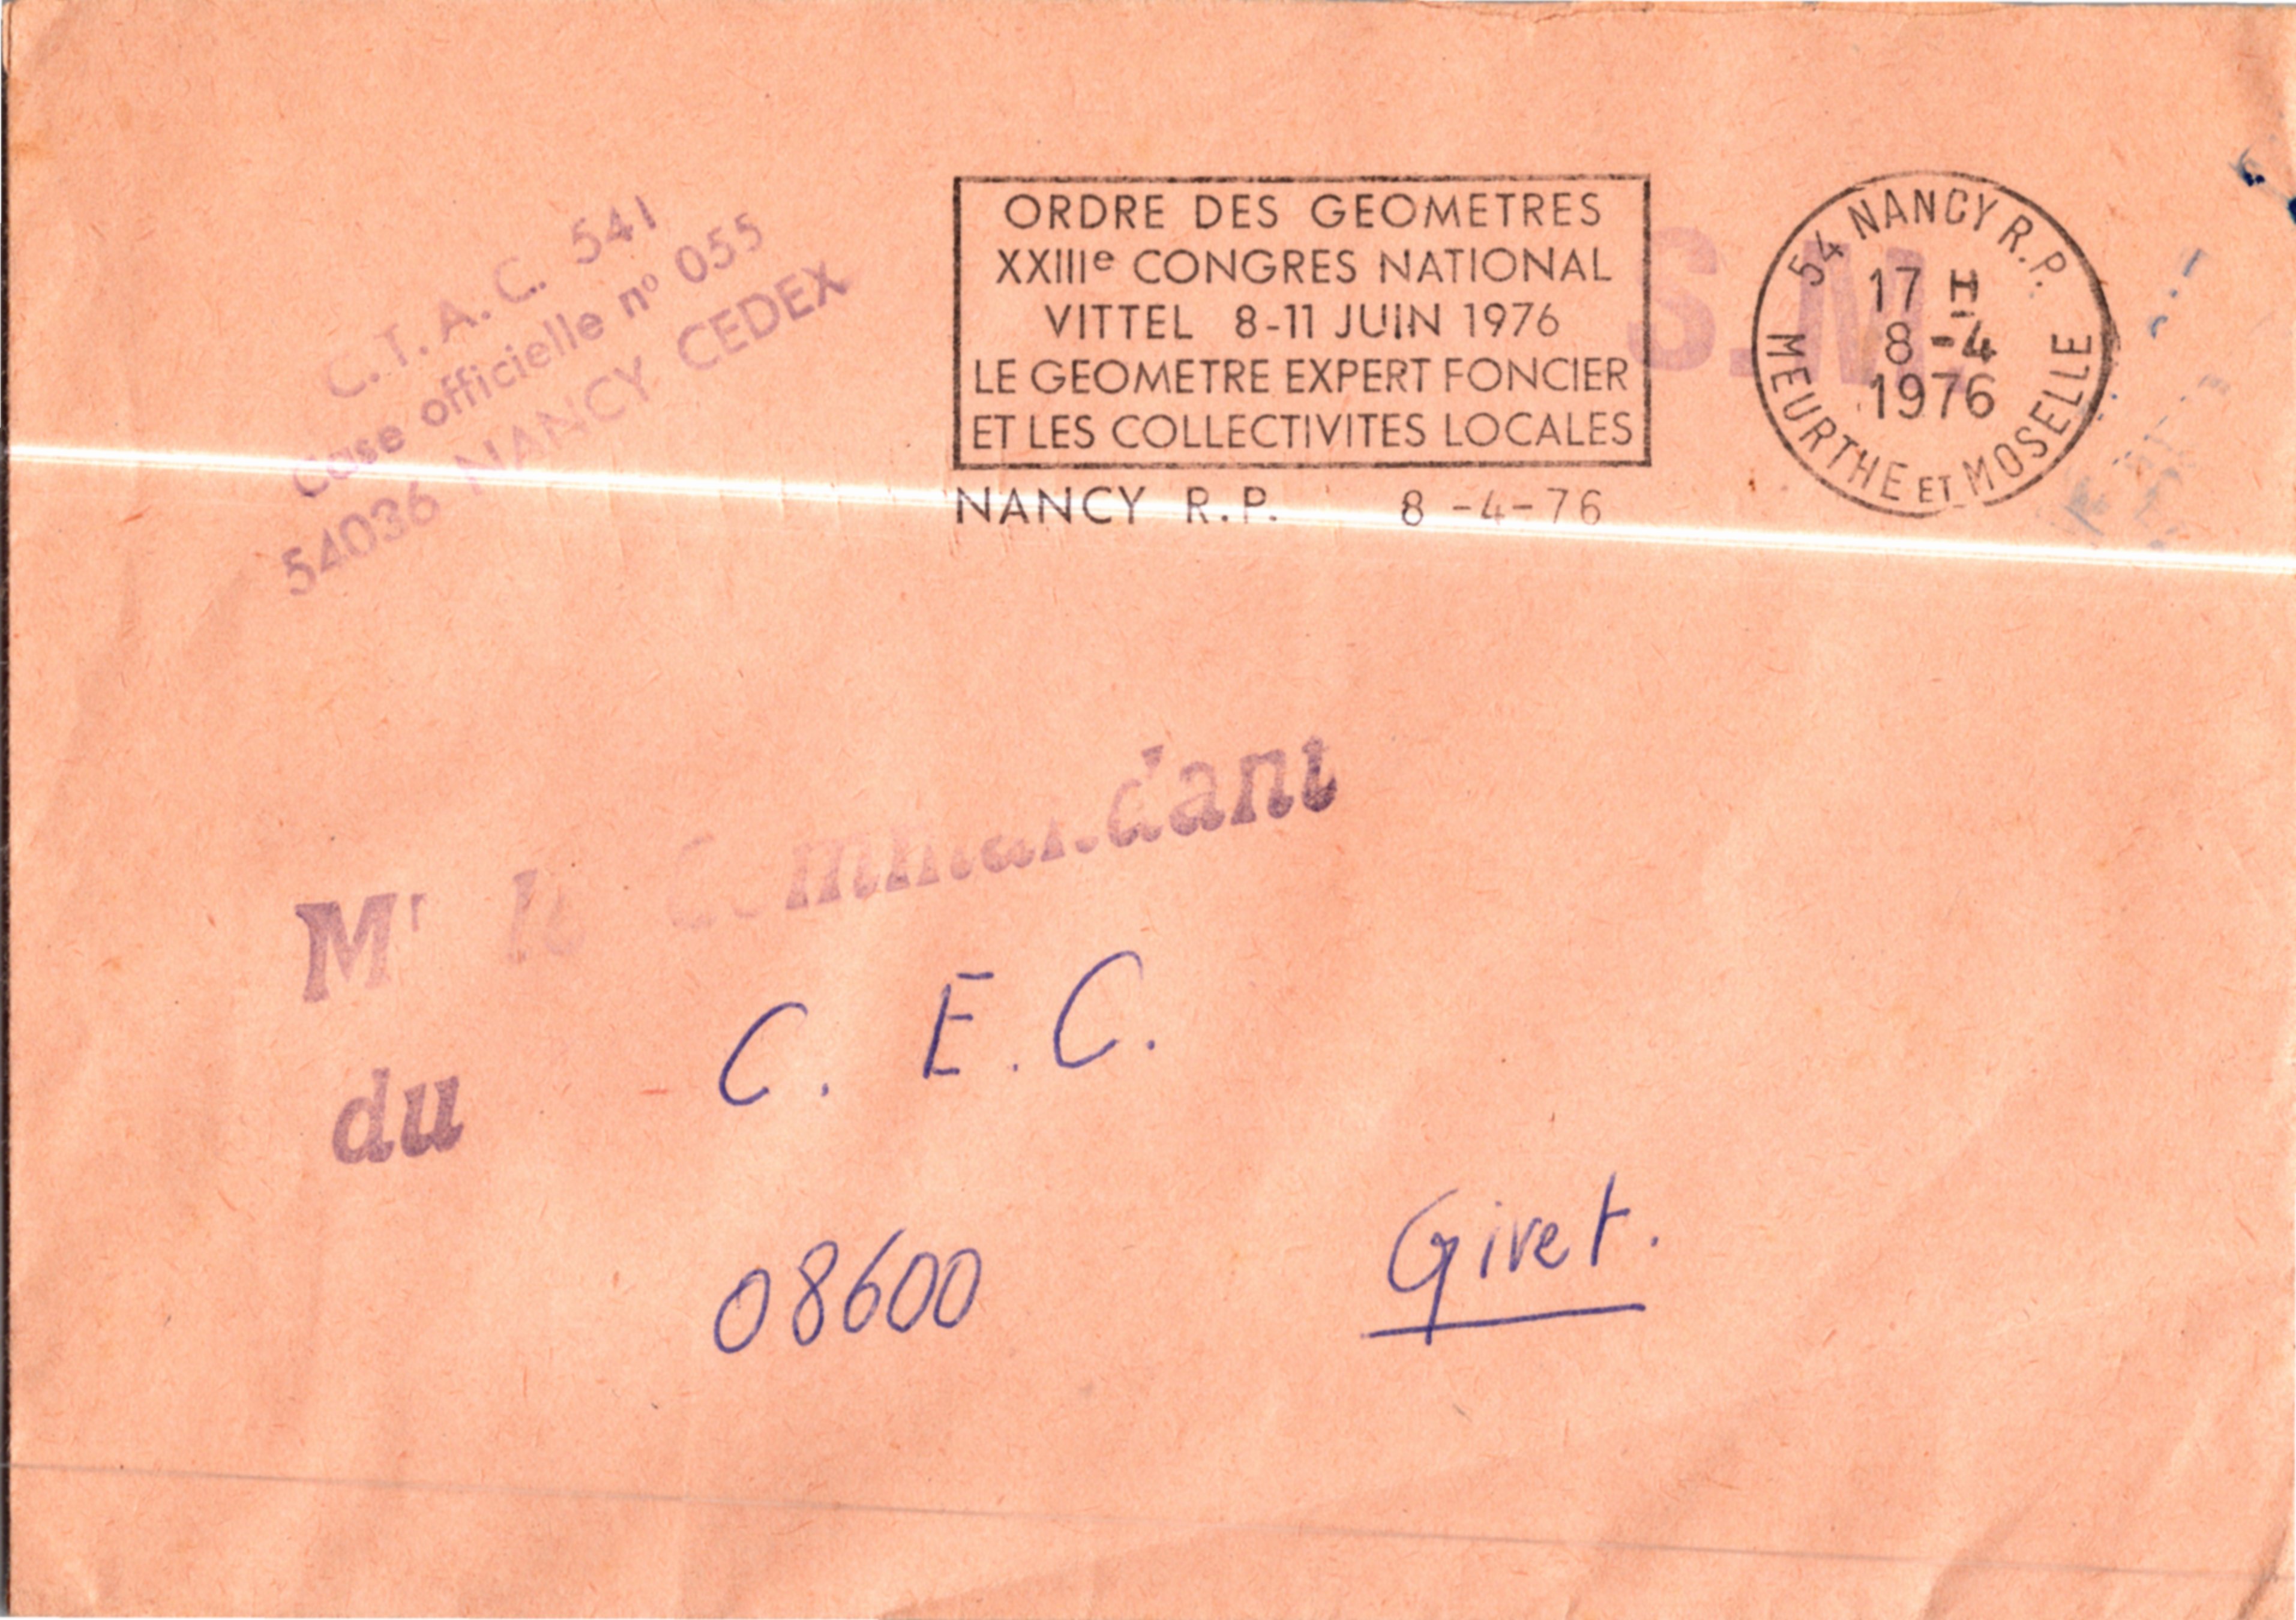 C.T.A.C. 541
Case officielle nº 055
54036 NANCY CEDEX
ORDRE DES GEOMETRES
XXIIIe CONGRES NATIONAL
VITTEL 8-11 JUIN 1976
LE GEOMETRE EXPERT FONCIER
ET LES COLLECTIVITES LOCALES
NANCY R.P. 8-4-76
S.M.
54 NANCY R.P.
17 H
8-4
1976
MEURTHE ET MOSELLE
Mr le Commandant
du C.E.C.
08600 Givet.